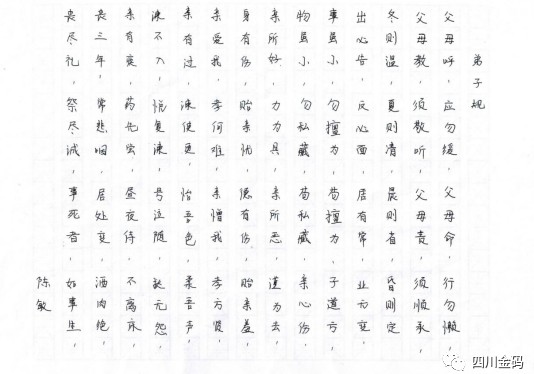 弟子规
父母呼，应勿缓，父母命，行勿懒，
父母教，须敬听，父母责，须顺承，
冬则温，夏则清，晨则省，昏则定，
出必告，反必面，居有常，业无变，
事虽小，勿擅为，苟擅为，子道亏，
物虽小，勿私藏，苟私藏，亲心伤，
亲所好，力为具，亲所恶，谨为去，
身有伤，贻亲忧，德有伤，贻亲羞，
亲爱我，孝何难，亲憎我，孝方贤，
亲有过，谏使更，怡吾色，柔吾声，
谏不入，悦复谏，号泣随，挞无怨，
亲有疾，药先尝，昼夜侍，不离床，
丧三年，常悲咽，居处变，酒肉绝，
丧尽礼，祭尽诚，事死者，如事生，
陈敏
四川金码